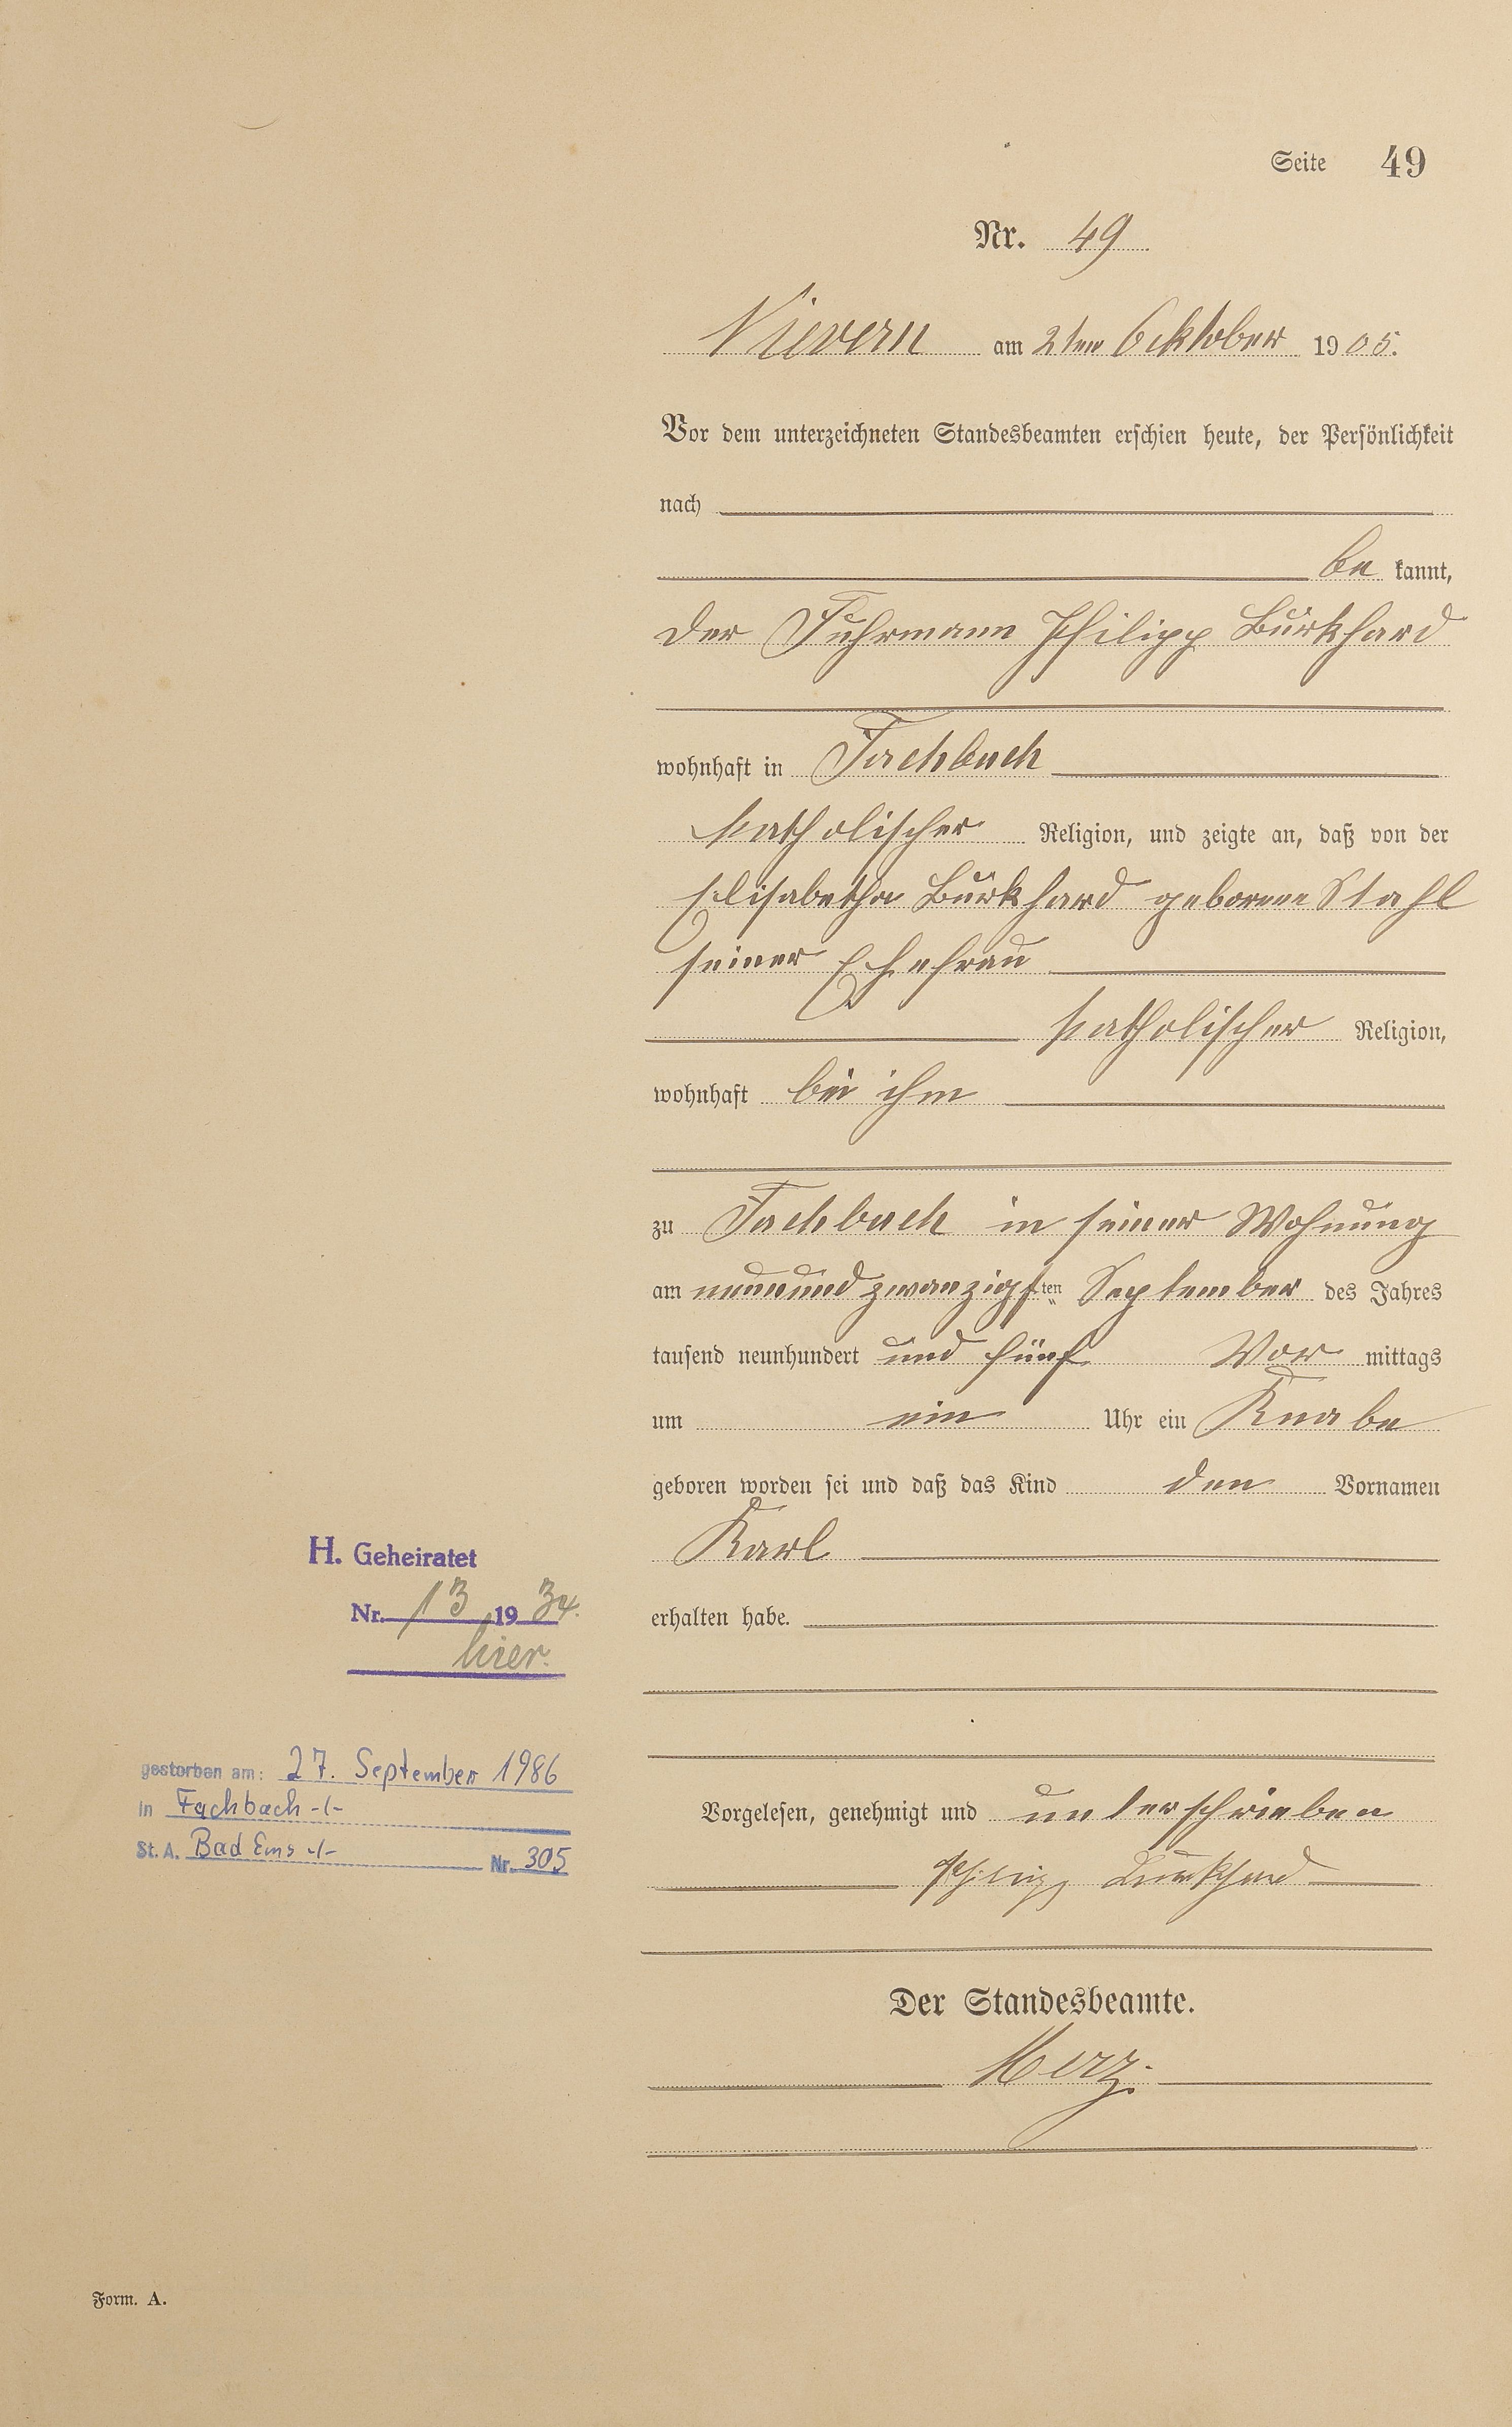 Seite 49
Nr. 49
Nievern am 2ten Ocktober 1905.
Vor dem unterzeichneten Standesbeamten erschien heute, der Persönlichkeit
nach
be kannt,
der Fuhrmann Philipp Burkhard
wohnhaft in Fachbach
katholischer Religion, und zeigte an, daß von der
Elisabetha Burkhard geborene Stahl
seiner Ehefrau
katholischer Religion,
wohnhaft bei ihm
zu Fachbach in seiner Wohnung
am neunundzwanzigsten September des Jahres
tausend neunhundert und fünf Vor mittags
um ein Uhr ein Knabe
geboren worden sei und daß das Kind den Vornamen
Karl
erhalten habe.
H. Geheiratet
Nr. 13 1934.
hier.
gestorben am: 27. September 1986
in Fachbach -/-
St. A. Bad Ems -/- Nr. 305
Vorgelesen, genehmigt und unterschrieben
Philipp Burkhard
Der Standesbeamte.
Merz.
Form. A.